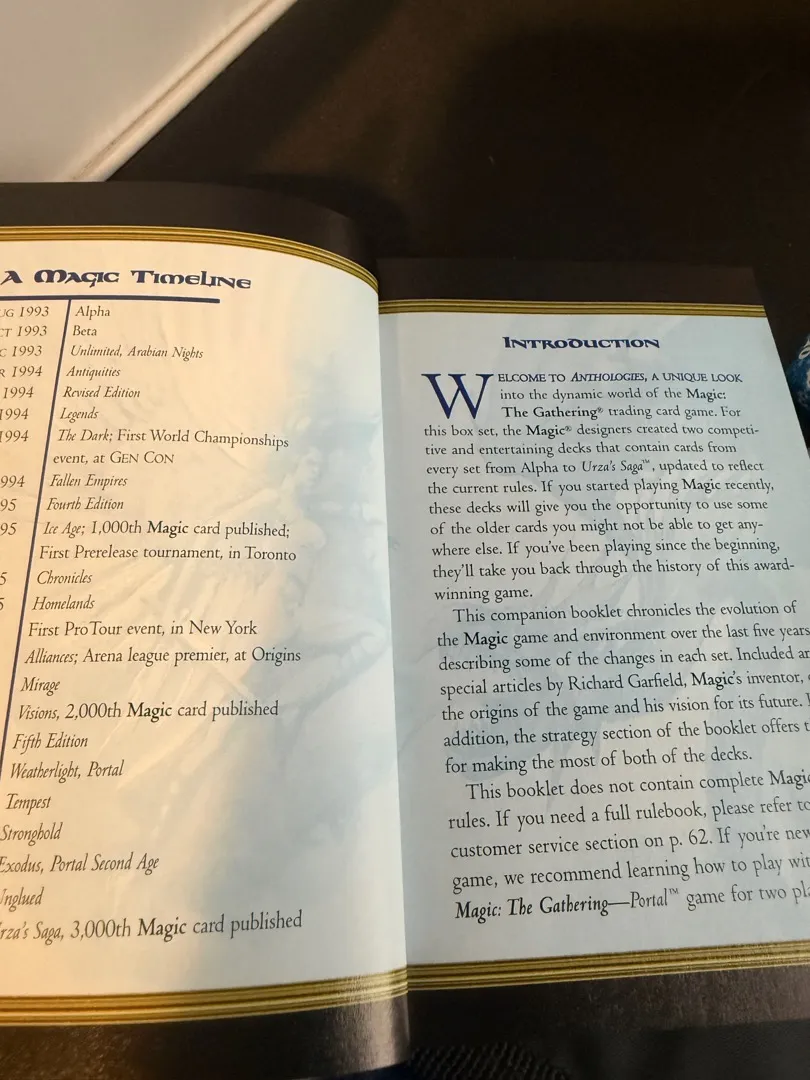 A Magic Timeline
1993 Alpha
1993 Beta
1993 Unlimited, Arabian Nights
1994 Antiquities
1994 Revised Edition
1994 Legends
1994 The Dark; First World Championships
event, at GEN CON
994 Fallen Empires
95 Fourth Edition
95 Ice Age; 1,000th Magic card published;
First Prerelease tournament, in Toronto
5 Chronicles
5 Homelands
First ProTour event, in New York
Alliances; Arena league premier, at Origins
Mirage
Visions, 2,000th Magic card published
Fifth Edition
Weatherlight, Portal
Tempest
Stronghold
Exodus, Portal Second Age
nglued
rza's Saga, 3,000th Magic card published
Introduction
WELCOME TO ANTHOLOGIES, A UNIQUE LOOK
into the dynamic world of the Magic:
The Gathering® trading card game. For
this box set, the Magic® designers created two competi-
tive and entertaining decks that contain cards from
every set from Alpha to Urza's Saga™, updated to reflect
the current rules. If you started playing Magic recently,
these decks will give you the opportunity to use some
of the older cards you might not be able to get any-
where else. If you've been playing since the beginning,
they'll take you back through the history of this award-
winning game.
This companion booklet chronicles the evolution of
the Magic game and environment over the last five years
describing some of the changes in each set. Included ar
special articles by Richard Garfield, Magic's inventor,
the origins of the game and his vision for its future.
addition, the strategy section of the booklet offers t
for making the most of both of the decks.
This booklet does not contain complete Magic
rules. If you need a full rulebook, please refer to
customer service section on p. 62. If you're new
game, we recommend learning how to play wit
Magic: The Gathering—Portal™ game for two pla